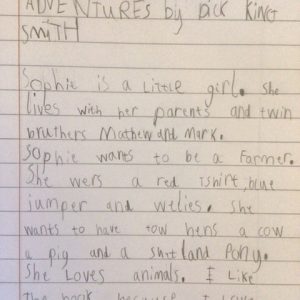 ADVENTURES by DICK KING
SMITH
Sophie is a little girl. She
lives with her parents and twin
bruthers Mathew and Mark.
Sophie wants to be a Farmer.
She wers a red Tshirt, blue
jumper and wellies. She
wants to have tow hens a cow
a pig and a shetland Pony.
She Loves animals. I Like
the book because I